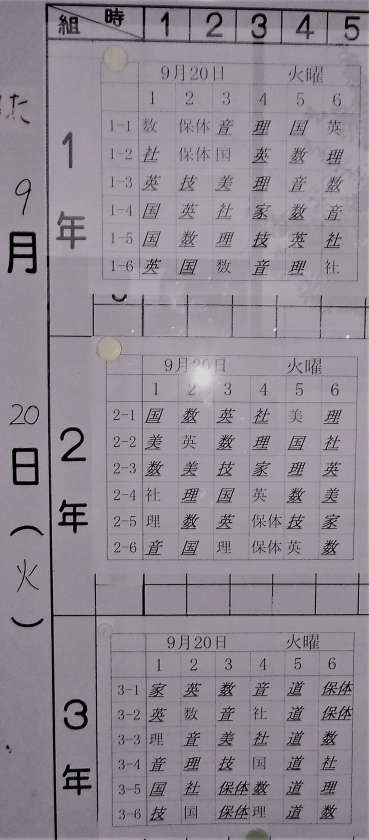 時
組 1 2 3 4 5
9月
20
日
(
火
)
1年
9月20日 火曜
1 2 3 4 5 6
1-1 数 保体 音 理 国 英
1-2 社 保体 国 英 数 理
1-3 英 技 美 理 音 数
1-4 国 英 社 家 数 音
1-5 国 数 理 技 英 社
1-6 英 国 数 音 理 社
2年
9月20日 火曜
1 2 3 4 5 6
2-1 国 数 英 社 美 理
2-2 美 英 数 理 国 社
2-3 数 美 技 家 理 英
2-4 社 理 国 英 数 美
2-5 理 数 英 保体 技 家
2-6 音 国 理 保体 英 数
3年
9月20日 火曜
1 2 3 4 5 6
3-1 家 英 数 音 道 保体
3-2 英 数 音 社 道 保体
3-3 理 音 美 社 道 数
3-4 音 理 技 国 道 社
3-5 国 社 保体 数 道 理
3-6 技 国 保体 理 道 数